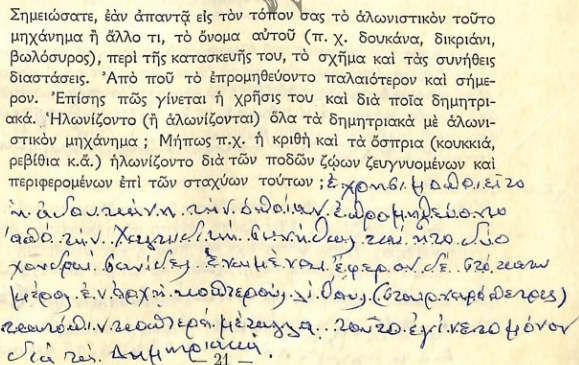 Σημειώσατε, ἐὰν ἀπαντᾷ εἰς τὸν τόπον σας τὸ ἁλωνιστικὸν τοῦτο
μηχάνημα ἢ ἄλλο τι, τὸ ὄνομα αὐτοῦ (π. χ. δουκάνα, δικριάνι,
βωλόσυρος), περὶ τῆς κατασκευῆς του, τὸ σχῆμα καὶ τὰς συνήθεις
διαστάσεις. Ἀπὸ ποῦ τὸ ἐπρομηθεύοντο παλαιότερον καὶ σήμε-
ρον. Ἐπίσης πῶς γίνεται ἡ χρῆσις του καὶ διὰ ποῖα δημητρι-
ακά. Ἡλωνίζοντο (ἢ ἁλωνίζονται) ὅλα τὰ δημητριακὰ μὲ ἁλωνι-
στικὸν μηχάνημα ; Μήπως π.χ. ἡ κριθὴ καὶ τὰ ὄσπρια (κουκκιά,
ρεβίθια κ.ἄ.) ἡλωνίζοντο διὰ τῶν ποδῶν ζῴων ζευγνυομένων καὶ
περιφερομένων ἐπὶ τῶν σταχύων τούτων ; ἐχρησιμοποιεῖτο
ἡ ἀδουκάνη τὴν ὁποίαν ἐπρομηθεύοντο
ἀπὸ τὴν Χαλκιδικὴ συνήθως καὶ ἦτο δύο
χονδραὶ σανίδες ἔφερον δὲ στὸ κάτω
μέρος ἐν ἀρχῇ κοπτεροὺς λίθους (στουρναρόπετρες)
κατόπιν κοπτερὰ μέταλλα τοῦτο ἐγίνετο μόνον
διὰ τὰ Δημητριακά.
— 21 —